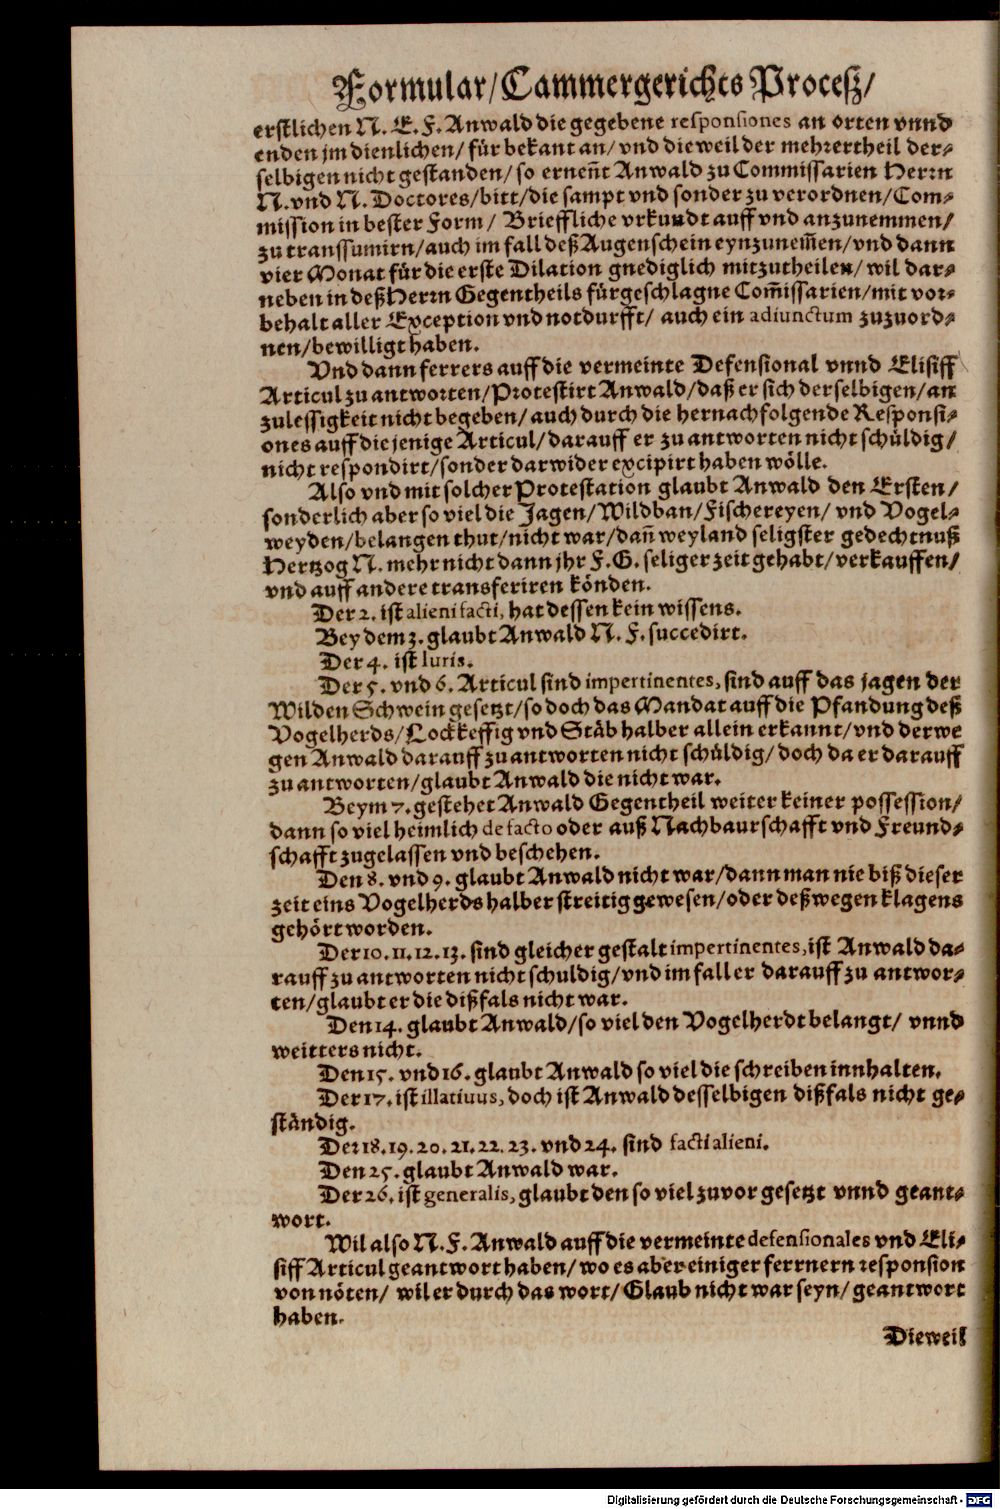 Formular/Cammergerichts Proceß/
erstlichen N. E. F. Anwald die gegebene responsiones an orten vnnd
enden jm dienlichen/ für bekant an/ vnd dieweil der mehrertheil der-
selbigen nicht gestanden/ so ernen̄t Anwald zu Commissarien Herrn
N. vnd N. Doctores/bitt/die sampt vnd sonder zu verordnen/Com-
mission in bester Form/ Brieffliche vrkundt auff vnd anzunemmen/
zu transsumirn/auch im fall deß Augenschein eynzunem̄en/vnd dann
vier Monat für die erste Dilation gnediglich mitzutheilen/wil dar-
neben in deß Herrn Gegentheils fürgeschlagne Com̄issarien/mit vor-
behalt aller Exception vnd notdurfft/ auch ein adiunctum zuzuord-
nen/bewilligt haben.
Vnd dann ferrers auff die vermeinte Defensional vnnd Elisiff
Articul zu antworten/Protestirt Anwald/daß er sich derselbigen/an
zulessigkeit nicht begeben/auch durch die hernachfolgende Responsi-
ones auff die jenige Articul/darauff er zu antworten nicht schüldig/
nicht respondirt/sonder darwider excipirt haben wölle.
Also vnd mit solcher Protestation glaubt Anwald den Ersten/
sonderlich aber so viel die Jagen/Wildban/Fischereyen/ vnd Vogel-
weyden/belangen thut/nicht war/dan̄ weyland seligster gedechtnuß
Hertzog N. mehr nicht dann jhr F. G. seliger zeit gehabt/verkauffen/
vnd auff andere transferiren könden.
Der 2. ist alieni facti, hat dessen kein wissens.
Bey dem 3. glaubt Anwald N. F. succedirt.
Der 4. ist Iuris.
Der 5. vnd 6. Articul sind impertinentes, sind auff das jagen der
Wilden Schwein gesetzt/so doch das Mandat auff die Pfandung deß
Vogelherds/Lockkeffig vnd Stäb halber allein erkannt/vnd derwe
gen Anwald darauff zu antworten nicht schüldig/doch da er darauff
zu antworten/glaubt Anwald die nicht war.
Beym 7. gestehet Anwald Gegentheil weiter keiner possession/
dann so viel heimlich de facto oder auß Nachbaurschafft vnd Freund-
schafft zugelassen vnd beschehen.
Den 8. vnd 9. glaubt Anwald nicht war/dann man nie biß dieser
zeit eins Vogelherds halber streitig gewesen/oder deßwegen klagens
gehört worden.
Der 10. 11. 12. 13. sind gleicher gestalt impertinentes, ist Anwald da-
rauff zu antworten nicht schuldig/vnd im fall er darauff zu antwor-
ten/glaubt er die dißfals nicht war.
Den 14. glaubt Anwald/so viel den Vogelherdt belangt/ vnnd
weitters nicht.
Den 15. vnd 16. glaubt Anwald so viel die schreiben innhalten.
Der 17. ist illatiuus, doch ist Anwald desselbigen dißfals nicht ge-
ständig.
Der 18. 19. 20. 21. 22. 23. vnd 24. sind facti alieni.
Den 25. glaubt Anwald war.
Der 26. ist generalis, glaubt den so viel zuvor gesetzt vnnd geant-
wort.
Wil also N. F. Anwald auff die vermeinte defensionales vnd Eli-
siff Articul geantwort haben/wo es aber einiger ferrnern responsion
von nöten/ wil er durch das wort/Glaub nicht war seyn/geantwort
haben.
Dieweil
Digitalisierung gefördert durch die Deutsche Forschungsgemeinschaft - DFG